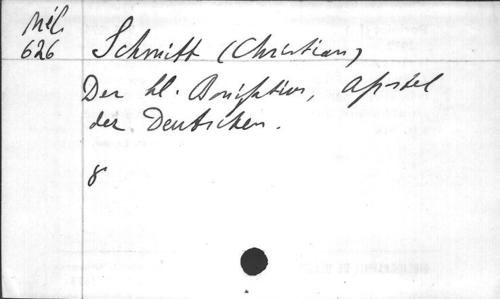 Mél.
626
Schmitt (Christian)
Der hl. Bonifatius, Apostel
der Deutschen.
8